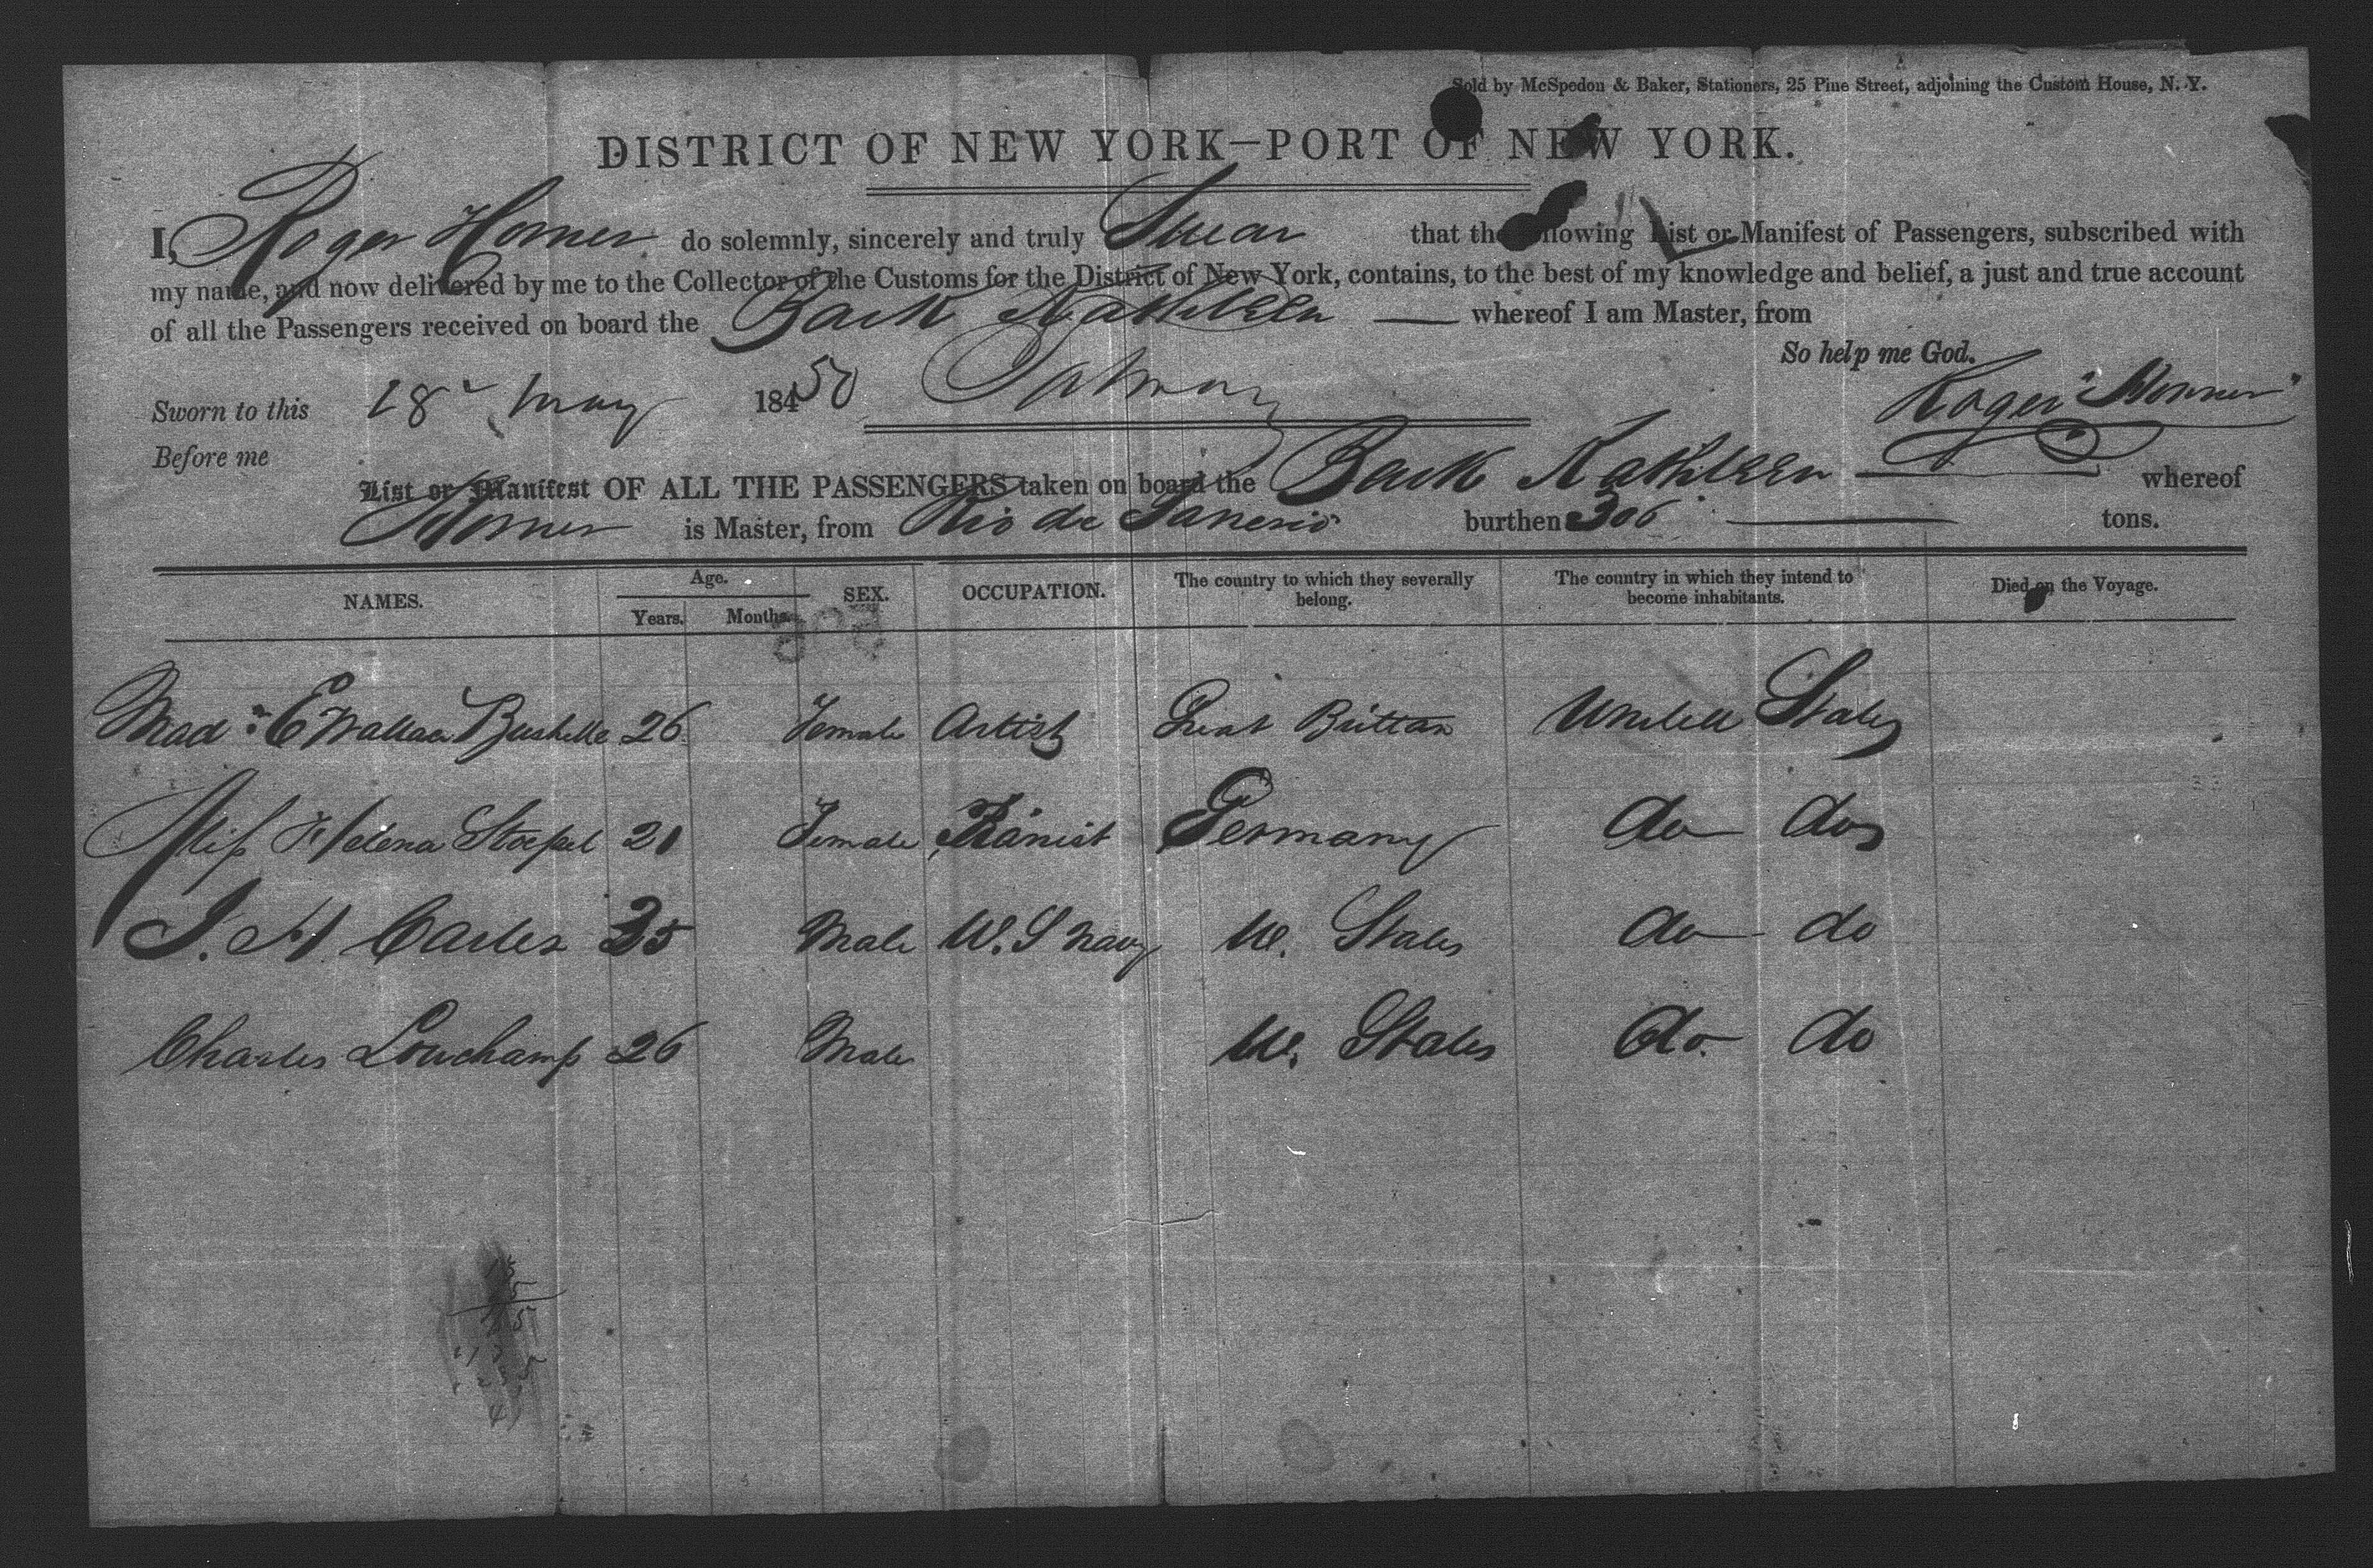 Sold by McSpedon & Baker, Stationers, 25 Pine Street, adjoining the Custom House, N. Y.
DISTRICT OF NEW YORK—PORT OF NEW YORK.
I, Roger Horner do solemnly, sincerely and truly Swear that the following List or Manifest of Passengers, subscribed with
my name, and now delivered by me to the Collector of the Customs for the District of New York, contains, to the best of my knowledge and belief, a just and true account
of all the Passengers received on board the Bark Kathleen — whereof I am Master, from
So help me God.
Sworn to this 18 May 1850 Roger Horner
Before me
List or Manifest OF ALL THE PASSENGERS taken on board the Bark Kathleen — whereof
Horner is Master, from Rio de Janerio burthen 306 — tons.
NAMES. Age. SEX. OCCUPATION. The country to which they severally belong. The country in which they intend to become inhabitants. Died on the Voyage.
Years. Months.
Mad E Wallace Bushelle 26 Female Artist Great Brittan United States
Miss Helena Stoepel 21 Female Pianist Germany do do
J. H Carles 35 Male U. S Navy U. States do do
Charles Lonchamp 26 Male U. States do do